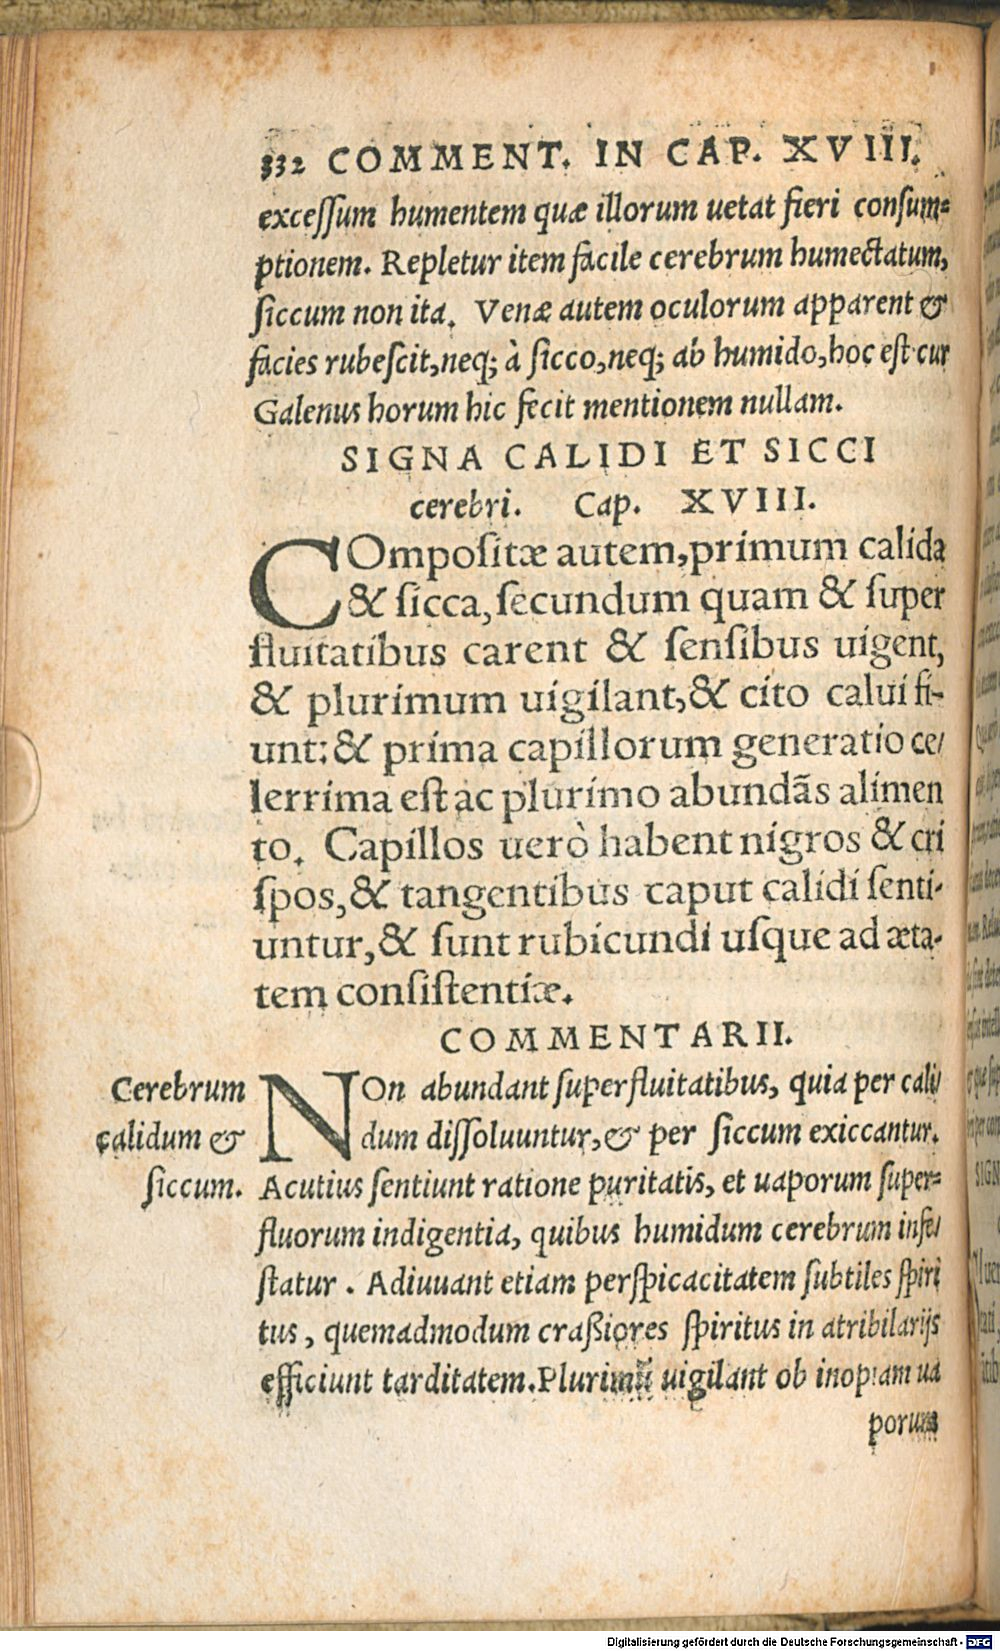 332 COMMENT. IN CAP. XVIII.
excessum humentem quæ illorum uetat fieri consum⸗
ptionem. Repletur item facile cerebrum humectatum,
siccum non ita. Venæ autem oculorum apparent &
facies rubescit, neq; à sicco, neq; ab humido, hoc est cur
Galenus horum hic fecit mentionem nullam.
SIGNA CALIDI ET SICCI
cerebri. Cap. XVIII.
COmpositæ autem, primum calida
& sicca, secundum quam & super
fluitatibus carent & sensibus uigent,
& plurimum uigilant, & cito calui fi-
unt: & prima capillorum generatio ce/
lerrima est ac plurimo abundãs alimen
to. Capillos uerò habent nigros & cri
spos, & tangentibus caput calidi senti-
untur, & sunt rubicundi usque ad æta-
tem consistentiæ.
COMMENTARII.
Cerebrum
calidum &
siccum.
NOn abundant superfluitatibus, quia per cali/
dum dissoluuntur, & per siccum exiccantur.
Acutius sentiunt ratione puritatis, et uaporum super⸗
fluorum indigentia, quibus humidum cerebrum infe/
statur. Adiuuant etiam perspicacitatem subtiles spiri
tus, quemadmodum craßiores spiritus in atribilarijs
efficiunt tarditatem. Plurimũ uigilant ob inopiam ua
porum
Digitalisierung gefördert durch die Deutsche Forschungsgemeinschaft - DFG